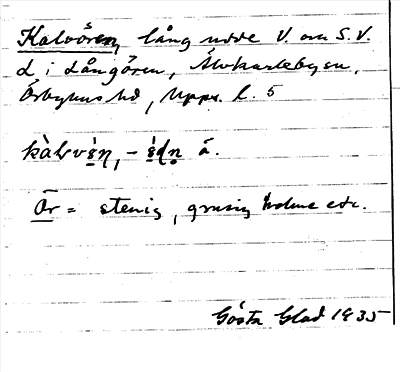 Kalvören, lång udde V. om S.V.
d. i Långören, Älvkarleby sn,
Örbyhus hd, Upps. l. 5
kàlvö̀ṇ, - ö̀dṇ å.
Ör = stenig, grusig holme etc.
Gösta Glad 1935